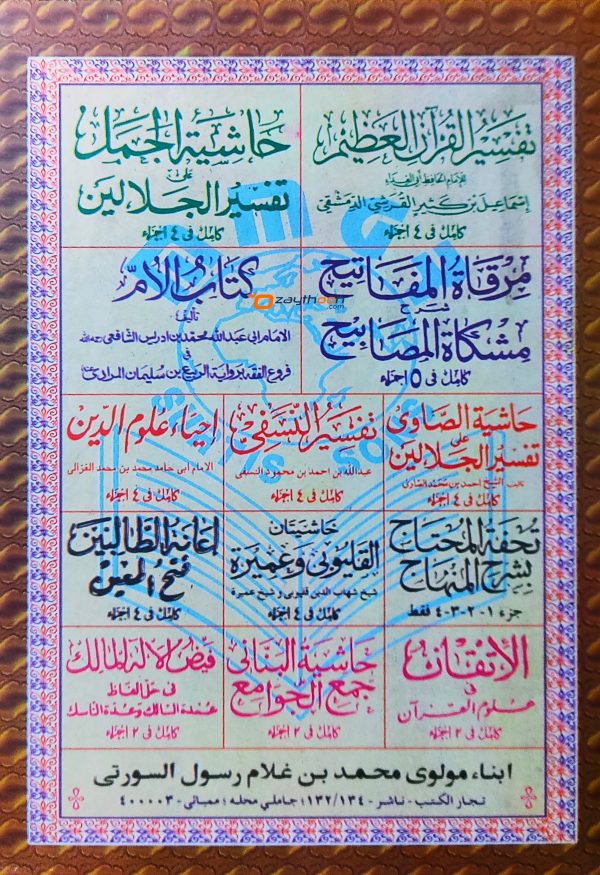 تفسير القرآن العظيم
للإمام الحافظ أبي الفداء
إسماعيل بن كثير القرشي الدمشقي
كامل في ٤ اجزاء
حاشية الجمل
على
تفسير الجلالين
كامل في ٤ اجزاء
مرقاة المفاتيح
شرح
مشكاة المصابيح
كامل في ٥ اجزاء
كتاب الأم
تأليف
الامام ابى عبدالله محمد بن ادريس الشافعى
في
فروع الفقه برواية الربيع بن سليمان المرادى
zaythoon
.com
حاشية الصاوى
على
تفسير الجلالين
تاليف الشيخ احمد بن محمد الصاوى
كامل في ٤ اجزاء
تفسير النسفى
عبدالله بن احمد بن محمود النسفى
كامل في ٤ اجزاء
إحياء علوم الدين
الامام أبى حامد محمد بن محمد الغزالى
كامل في ٤ اجزاء
تحفة المحتاج
بشرح المنهاج
جزء ١-٢-٣-٤ فقط
حاشيتان
القليوبى وعميرة
شيخ شهاب الدين قليوبى و شيخ عميرة
كامل في ٤ اجزاء
إعانة الطالبين
فتح المعين
كامل في ٤ اجزاء
الإتقان
في
علوم القرآن
كامل في ٢ اجزاء
حاشية البنانى
جمع الجوامع
كامل في ٢ اجزاء
فيض الإله المالك
في حل الفاظ
عمدة السالك وعدة الناسك
كامل في ٢ اجزاء
ابناء مولوى محمد بن غلام رسول السورتى
تجار الكتب - ناشر - ١٣٢/١٣٤؛ جاملي محله؛ ممبائى - ٤٠٠٠٠٣